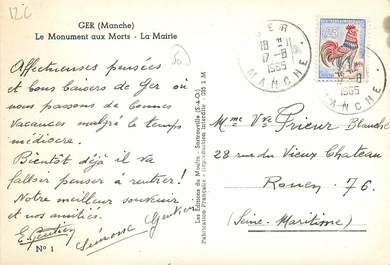 12C
GER (Manche)
Le Monument aux Morts - La Mairie
Affectueuses pensées
et bons baisers de Ger où
nous passons de bonnes
vacances malgré le temps
médiocre.
Bientôt déjà il va
falloir penser à rentrer!
Notre meilleur souvenir
et nos amitiés.
E. Gentien
Simone Gentien
N° 1
Les Editions du Moulin - Sartrouville (S.-&-O.)
Fabrication Française - Reproduction interdite
GER
18 H
17-8
1965
MANCHE
-8
1965
MANCHE
0,25
Mme Vve Prieur Blanche
28 rue du Vieux Chateau
Rouen. 76.
(Seine-Maritime)